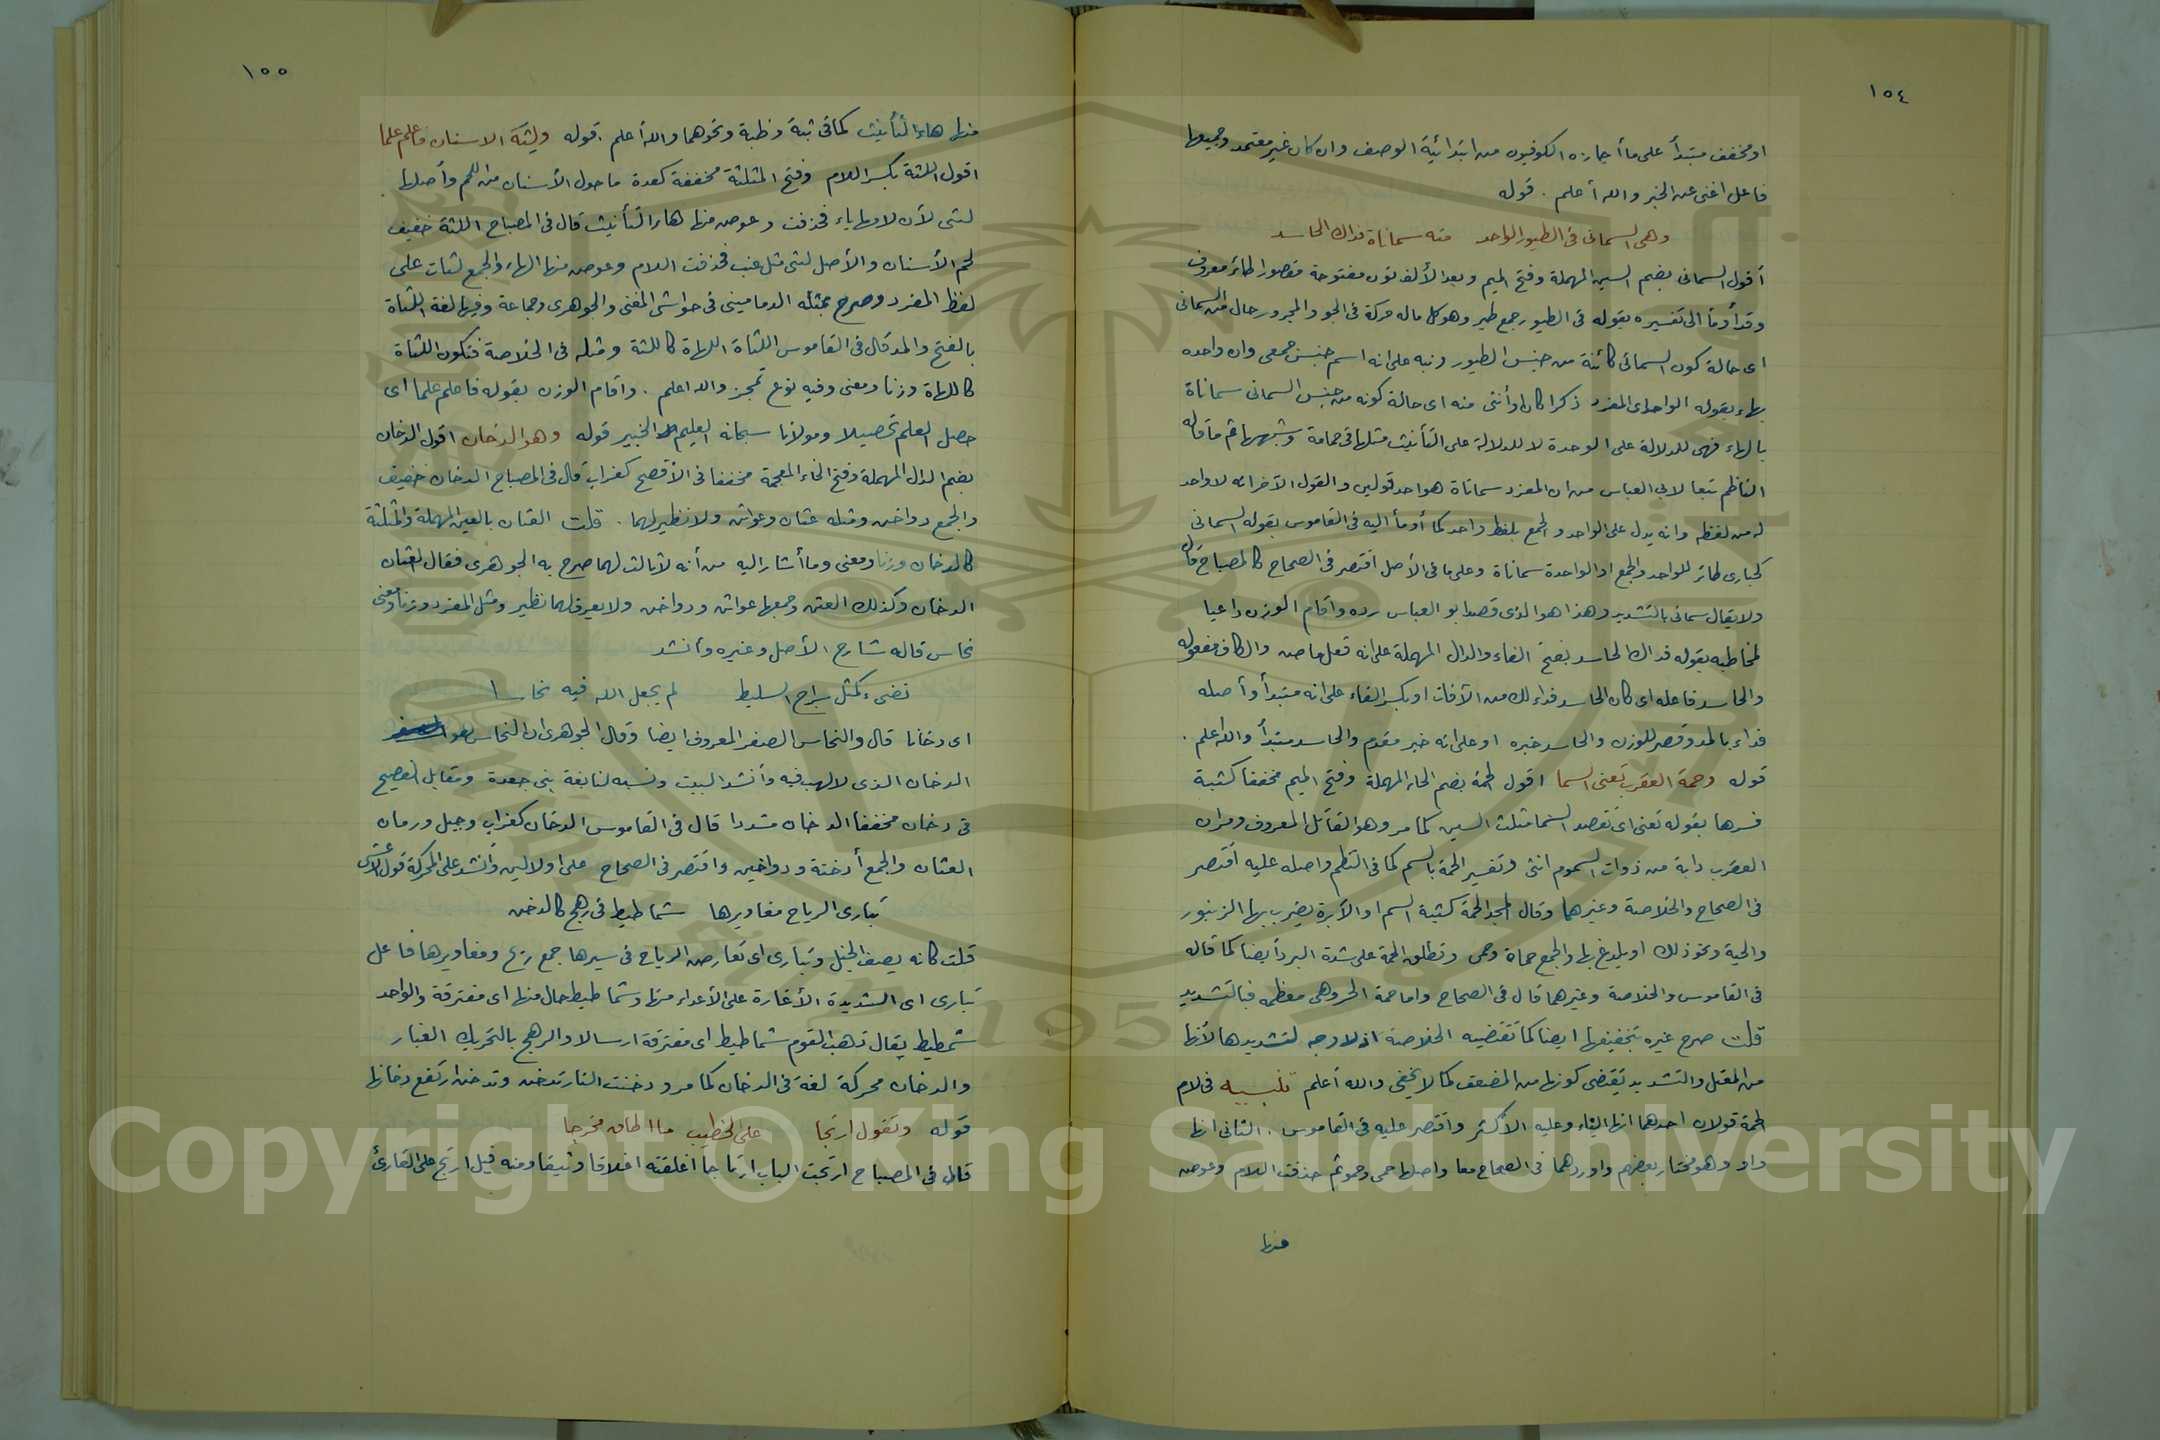 ١٥٤
او مخفف مبتدأ على ما أجازه الكوفيون من ابتدائية الوصف وان كان غير معتمد وجميعها
فاعل اغنى عن الخبر والله أعلم . قوله
وهى السمانى فى الطيور الواحد منه سماناة فداك الحاسد
أقول السمانى بضم السين المهملة وفتح الميم وبعد الألف نون مفتوحة مقصورا طائر معروف
وقد أومأ الى تفسيره بقوله فى الطيور جمع طير وهو كل ماله حركة فى الجو والمجرور حال من السمانى
اى حالة كون السمانى كائنة من جنس الطيور ونبه على انه اسم جنس جمعى وان واحده
بهاء بقوله الواحد اى المفرد ذكرا كان او أنثى منه اى حالة كونه من جنس السمانى سماناة
بالهاء فهى للدلالة على الوحدة لا للدلالة على التأنيث مثلها فى حمامة وشبهها ثم ما قاله
الناظم تبعا لابى العباس من ان المفرد سماناة هو احد قولين والقول الآخر انه لا واحد
له من لفظه وانه يدل على الواحد والجمع بلفظ واحد كما أومأ اليه فى القاموس بقوله السمانى
كحبارى طائر للواحد والجمع او الواحدة سماناة وعلى ما فى الأصل اقتصر فى الصحاح كالمصباح قال
ولا يقال سمانى بالتشديد وهذا هو الذى قصد ابو العباس رده واقام الوزن داعيا
لمخاطبه بقوله فداك الحاسد بفتح الفاء والدال المهملة على انه فعل ماض والكاف مفعوله
والحاسد فاعله اى كان الحاسد فداء لك من الآفات او بكسر الفاء على انه مبتدأ وأصله
فداء بالمد وقصر للوزن والحاسد خبره او على انه خبر مقدم والحاسد مبتدأ والله اعلم .
قوله وحمة العقرب تعنى السما اقول الحمة بضم الحاء المهملة وفتح الميم مخففا كثبة
فسرها بقوله تعنى اى تقصد السما مثلث السين كما مر وهو القاتل المعروف ومر ان
العقرب دابة من ذوات السموم انثى وتفسير الحمة بالسم كما فى النظم واصله عليه اقتصر
فى الصحاح والخلاصة وغيرهما وقال المجد الحمة كثبة السم او الابرة يضرب بها الزنبور
والحية ونحو ذلك او يلدغ بها والجمع حماة وحمى وتطلق الحمة على شدة البرد أيضا كما قاله
فى القاموس والخلاصة وغيرهما قال فى الصحاح واما حمة الحر وهى معظمه فبالتشديد
قلت صرح غيره بتخفيفها ايضا كما تقتضيه الخلاصة اذ لا وجه لتشديدها لأنها
من المعتل والتشديد يقتضى كونها من المضعف كما لا يخفى والله أعلم تنبيه فى لام
الحمة قولان احدهما انها الياء وعليه الأكثر واقتصر عليه فى القاموس . الثانى انها
واو وهو مختار بعضهم واوردهما فى الصحاح معا واصلها حمى وحمو ثم حذفت اللام وعوض
منها
١٥٥
منها هاء التأنيث كما فى ثبة وظبة ونحوهما والله أعلم . قوله ولثة الاسنان فاعلم علما
اقول اللثة بكسر اللام وفتح المثلثة مخففة كعدة ما حول الأسنان من اللحم وأصلها
لثى لأن لامها ياء فحذفت وعوض منها هاء التأنيث قال فى المصباح اللثة خفيف
لحم الأسنان والأصل لثى مثل عنب فحذفت اللام وعوض منها الهاء والجمع لثات على
لفظ المفرد وصرح بمثله الدمامينى فى حواشى المغنى والجوهرى وجماعة وفيها لغة اللثاة
بالفتح والمد قال فى القاموس اللثاة اللهاة كاللثة ومثله فى الخلاصة فتكون اللثاة
كاللهاة وزنا ومعنى وفيه نوع تجوز والله اعلم . واقام الوزن بقوله فاعلم علما اى
حصل العلم تحصيلا ومولانا سبحانه العليم الخبير قوله وهو الدخان اقول الدخان
بضم الدال المهملة وفتح الخاء المعجمة مخففا فى الأفصح كغراب قال فى المصباح الدخان خفيف
والجمع دواخن ومثله عثان وعواثن ولا نظير لهما . قلت العثان بالعين المهملة والمثلثة
كالدخان وزنا ومعنى وما أشار اليه من أنه لا ثالث لهما صرح به الجوهرى فقال العثان
الدخان وكذلك العثن وجمعها عواثن ودواخن ولا يعرف لهما نظير ومثل المفرد وزنا ومعنى
نحاس قاله شارح الأصل وغيره وأنشد
تضىء كمثل سراج السليط لم يجعل الله فيه نحاسا
اى دخانا قال والنحاس الصفر المعروف ايضا وقال الجوهرى ان النحاس هو
الدخان الذى لا لهب فيه وأنشد البيت ونسبه لنابغة بنى جعدة ومقابل الفصيح
فى دخان مخففا الدخان مشددا قال فى القاموس الدخان كغراب وجبل ورمان
العثان والجمع أدخنة ودواخين واقتصر فى الصحاح على اولالين وأنشد على الحركة قول الأعشى
تبارى الرياح مغاويرها شماطيط فى رهج كالدخن
قلت كانه يصف الخيل وتبارى اى تعارض الرياح فى سيرها جمع ريح ومغاويرها فاعل
تبارى اى الشديدة الأغارة على الأعداء منها وشماطيط حال منها اى مفترقة والواحد
شمطيط يقال ذهب القوم شماطيط اى مفترقة ارسالا والرهج بالتحريك الغبار
والدخان محركة لغة فى الدخان كما مر ودخنت النار تدخن وتدخن ارتفع دخانها
قوله وتقول ارتجا على الخطيب ما اطاق مخرجا
قال فى المصباح ارتجت الباب ارتاجا اغلقته اغلاقا وثيقا ومنه قيل ارتج على القارئ
Copyright © King Saud University
1957